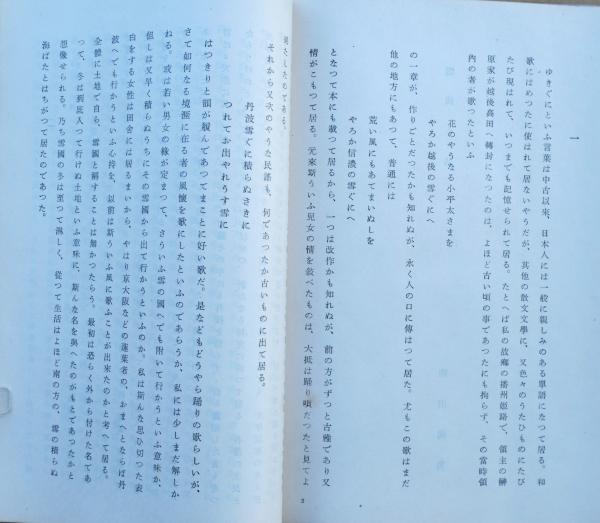 一
ゆきぐにといふ言葉は中古以来、日本人には一般に親しみのある単語になつて居る。和
歌にはめつたに使はれて居ないやうだが、其他の散文文學に、又色々のうたひものにたび
たび現はれて、いつまでも記憶せられて居る。たとへば私の故郷の播州姫路で、領主の榊
原家が越後高田へ轉封になつたのは、よほど古い頃の事であつたにも拘らず、その當時領
内の者が歌つたといふ
花のやうなる小平太さまを
やろか越後の雪ぐにへ
の一章が、作りごとだつたかも知れぬが、永く人の口に傳はつて居た。尤もこの歌はまだ
他の地方にもあつて、普通には
荒い風にもあてまいぬしを
やろか信濃の雪ぐにへ
となつて本にも載つて居るから、一つは改作かも知れぬが、前の方がずつと古雅であり又
情がこもつて居る。元來斯ういふ兒女の情を敍べたものは、大抵は踊り唄だつたと見てよ
2
それから又次のやうな民謡も、何であつたか古いものに出て居る。
丹波雪ぐに積らぬさきに
つれてお出やれうす雪に
はつきりと韻が履んであつてまことに好い歌だ。是などもどうやら踊りの歌らしいが、
さて如何なる境涯に在る者の風懷を歌にしたといふのであらうか、私には少しまだ解しか
ねる。或は若い男女の縁が定まつて、さういふ雪の國へでも附いて行かうといふ意味か、
但しは又早く積らぬうちにその雪國から出て行かうといふのか。私は斯んな思ひ切つた表
白をする女性は田舎には居るまいから、やはり京大阪などの蓮葉者の、おまへとならば丹
波へでも行かうといふ心持を、以前は斯ういふ風に歌ふことが出來たのかと考へて居る。
全體に土地で自ら、雪國と稱することは無かつたらう。最初は恐らく外から付けた名であ
つて、冬は到底人つて行けぬ土地といふ意味に、斯んな名を與へたのがもとであつたかと
想像せられる。乃ち雪國の冬は至つて淋しく、從つて生活はよほど南の方の、雪の積らぬ
海ばたとはちがつて居たのであつた。